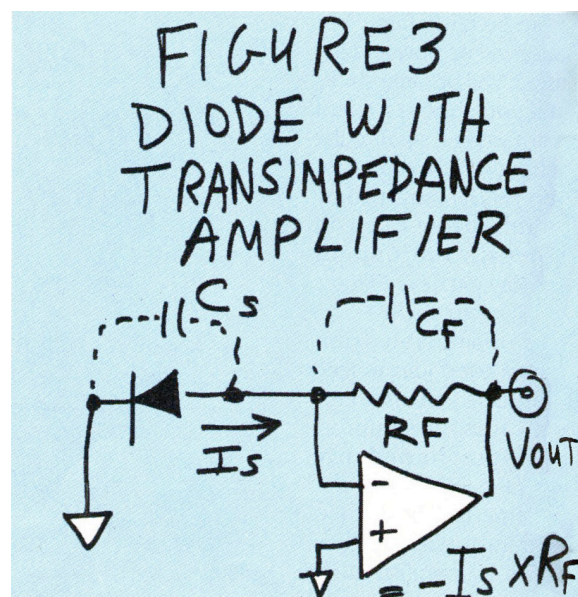 FIGURE 3
DIODE WITH
TRANSIMPEDANCE
AMPLIFIER
Cs
CF
Is
RF
VOUT
-
+
= -Is x RF